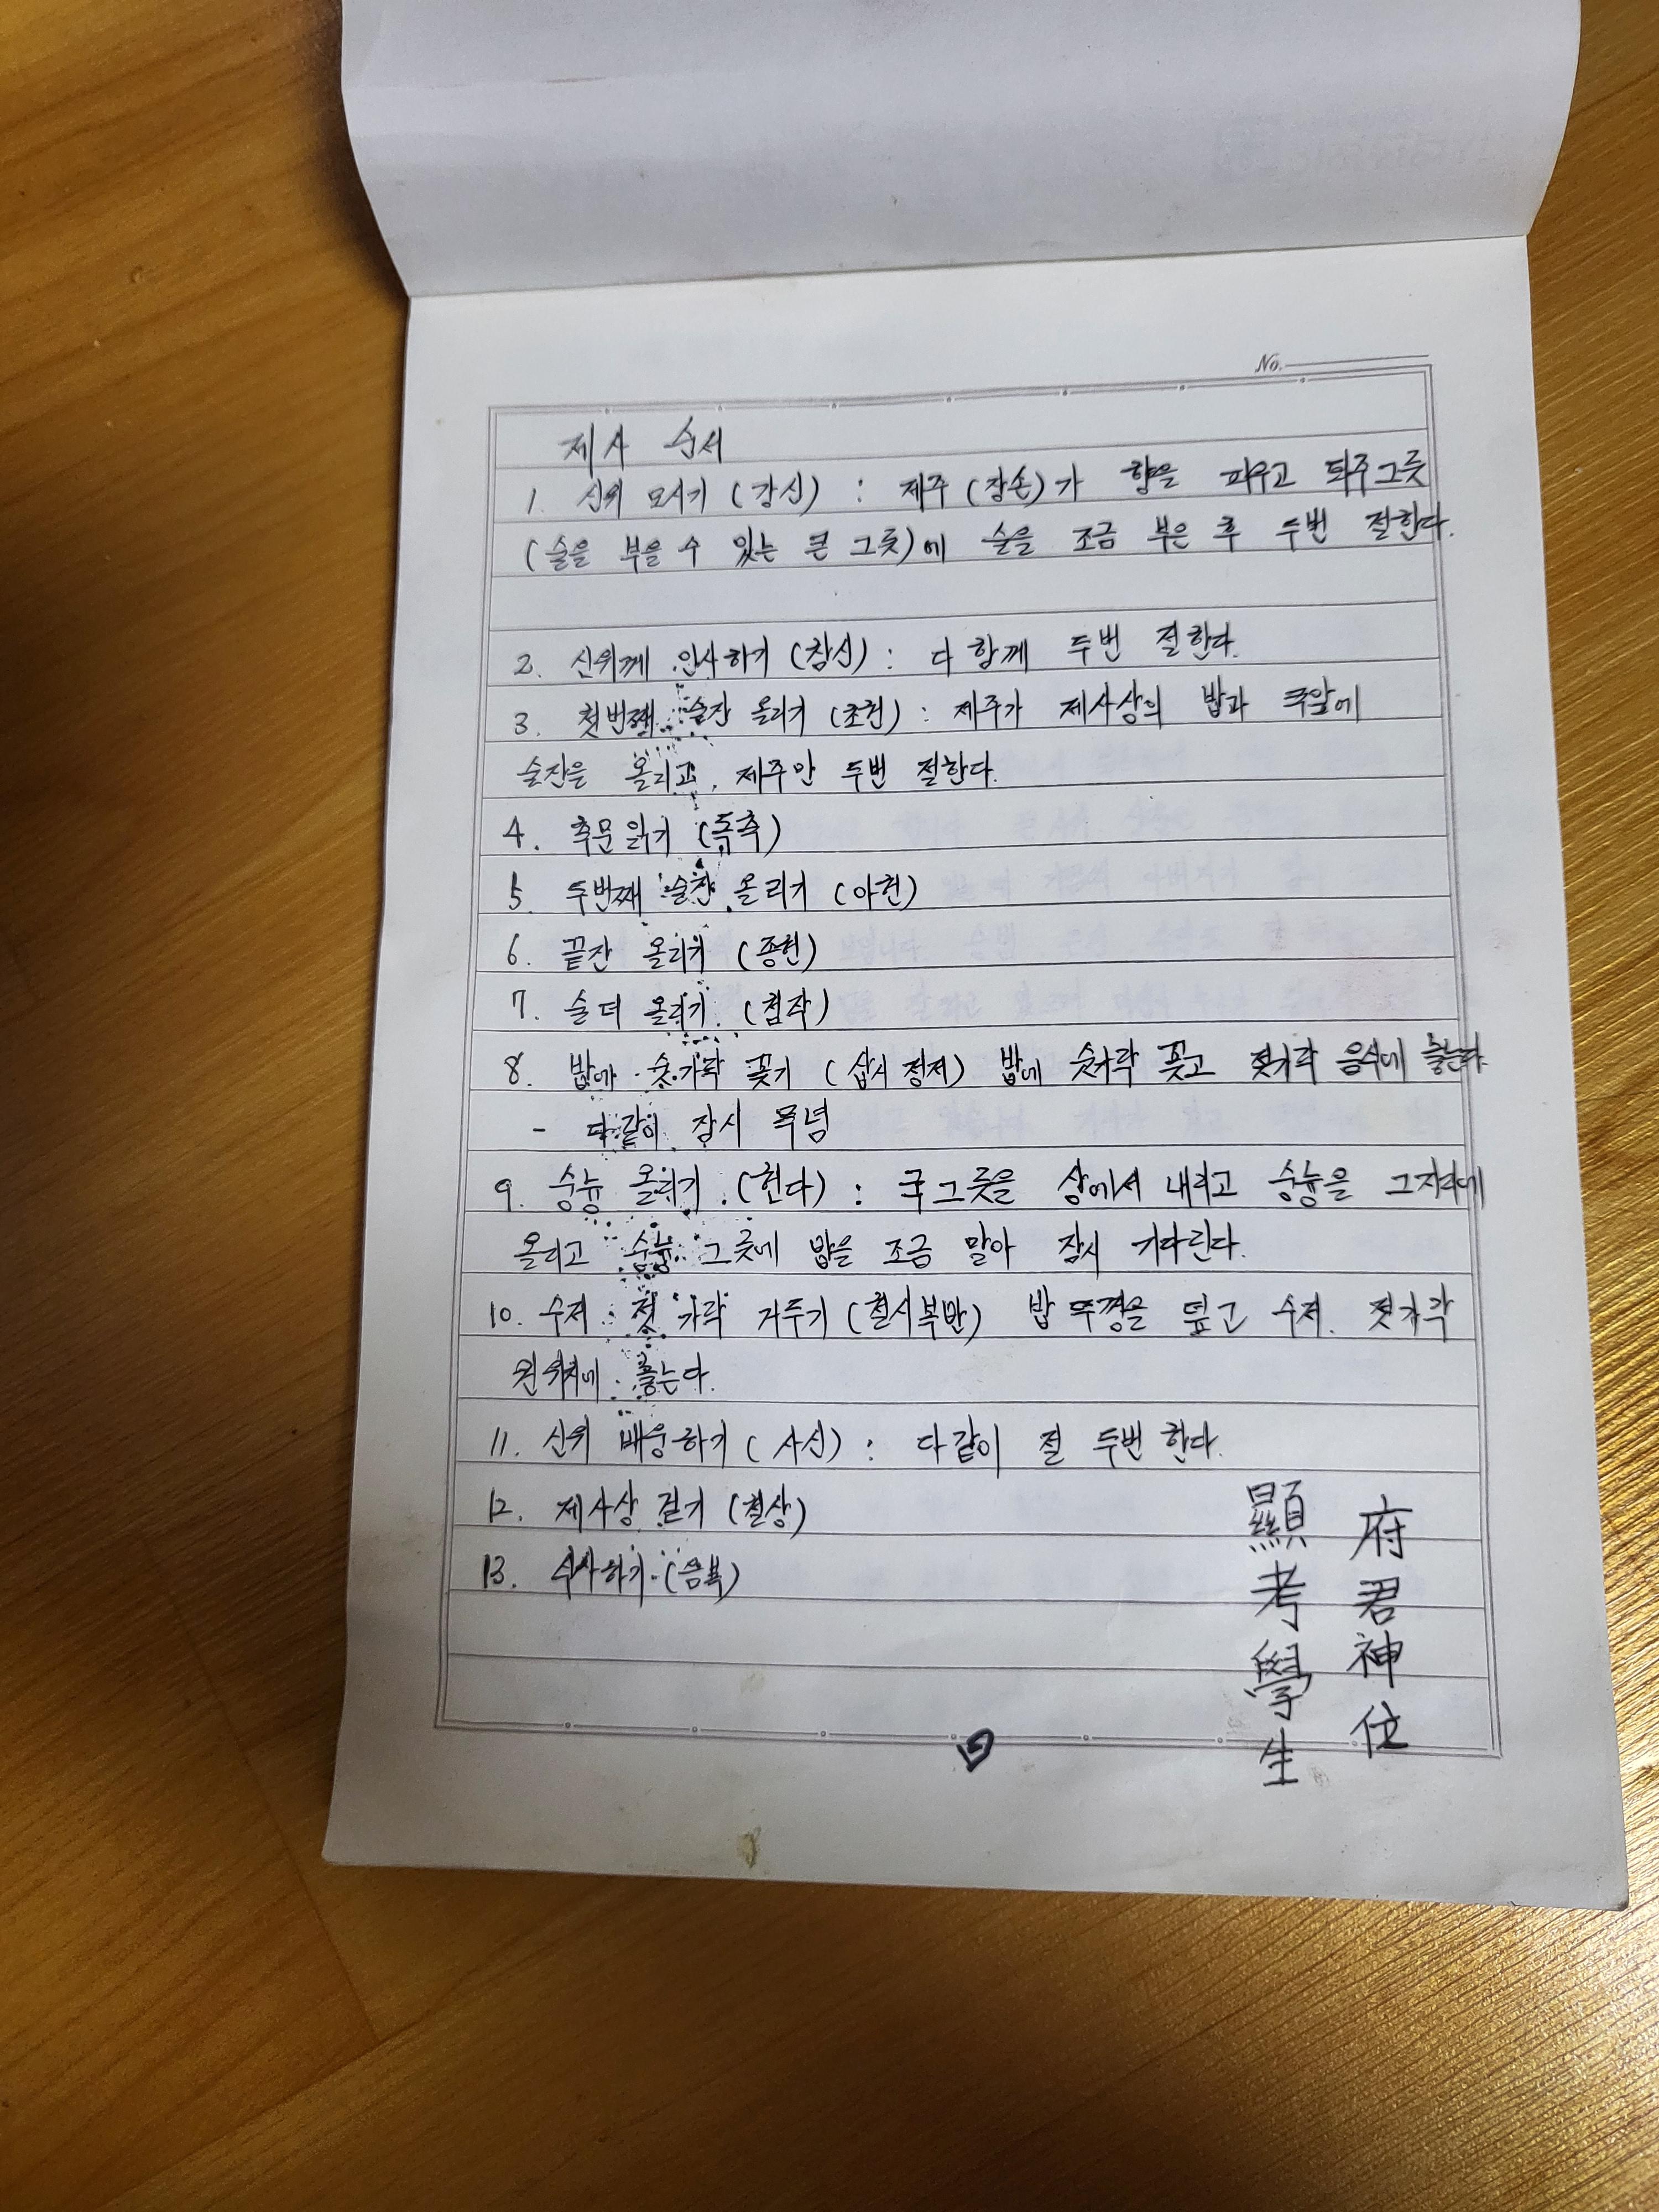 No.
제사 순서
1. 신위 모시기 (강신) : 제주 (장손)가 향을 피우고 퇴주그릇
(술을 부을 수 있는 큰 그릇)에 술을 조금 부은 후 두번 절한다.
2. 신위께 인사하기 (참신) : 다 함께 두번 절한다.
3. 첫번째 술잔 올리기 (초헌) : 제주가 제사상의 밥과 국앞에
술잔을 올리고, 제주만 두번 절한다.
4. 축문 읽기 (독축)
5. 두번째 술잔 올리기 (아헌)
6. 끝잔 올리기 (종헌)
7. 술 더 올리기 (첨작)
8. 밥에 숫가락 꽂기 (삽시 정저) 밥에 숫가락 꽂고 젓가락 음식에 놓는다.
- 다같이 잠시 묵념
9. 숭늉 올리기 (헌다) : 국그릇을 상에서 내리고 숭늉을 그자리에
올리고 숭늉 그릇에 밥을 조금 말아 잠시 기다린다.
10. 수저 젓가락 거두기 (철시복반) 밥 뚜껑을 덮고 수저, 젓가락
원위치에 놓는다.
11. 신위 배웅하기 (사신) : 다같이 절 두번 한다.
12. 제사상 걷기 (철상)
13. 식사하기 (음복)
顯考學生
府君神位